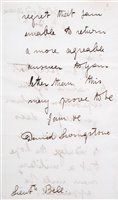 regret that I am
unable to return
a more agreeable
answer to you.
than this
may prove to be
I am &c
David Livingstone
Lieut. Bell.